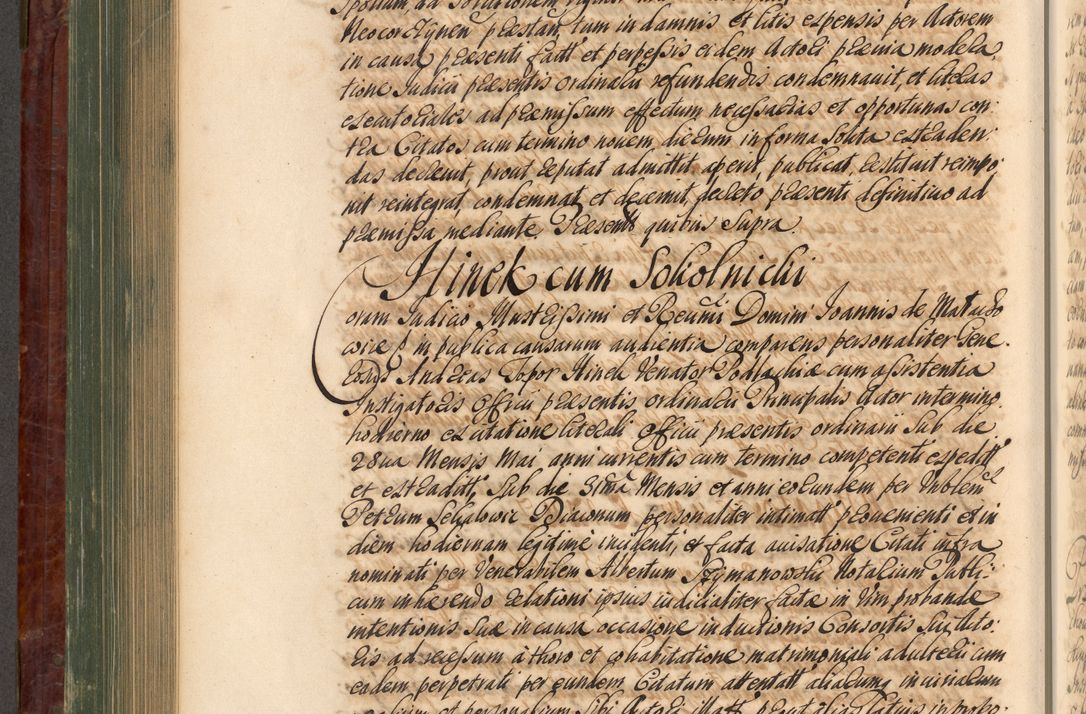 Neocorczynen præstan, tum in damnis et litis expensis per Actorem
in causa præsenti fact et perpessis eidem Actori prævia modera
tione Judicii præsentis ordinarii refundendis condemnavit, et literas
executoriales ad præmissum effectum necessarias et opportunas con
tra Citatos cum termino novem dierum in forma solita extraden
das decrevit, prout reputat admittit aperit, publicat, restituit reimpo
nit reintegrat, condemnat et decernit, decreto præsenti definitivo ad
præmissa mediante. Præsent quibus Supra.
Hinek cum Sokolnicki
oram Judicio Illustrissimi et Reverendi Domini Joannis de
in publica causarum audientia comparens personaliter Gene
rosus Andreas Topor Hinek Venator Podlachiæ cum assistentia
Instigatoris Officii præsentis ordinarii Principalis Actor in termino
hodierno ex citatione literali officii præsentis ordinarii sub die
28va Mensis Mai anni currentis cum termino competenti expedit
et extradit, sub die 31ma Mensis et anni eorundem per
Petrum Diaconum personaliter intimat provenienti et in
diem hodiernam legitime incidenti, et facta avisatione Citati infra
nominati per Venerabilem Albertum Szymanowski Notarium Publi
cum inhærendo relationi ipsius iudicialiter factæ in vim probandæ
intentionis suæ in causa occasione inductionis Consortis sui Acto
ris ad recessum à thoro et cohabitatione matrimoniali adulterii cum
eadem perpetrati per eundem Citatum attentat